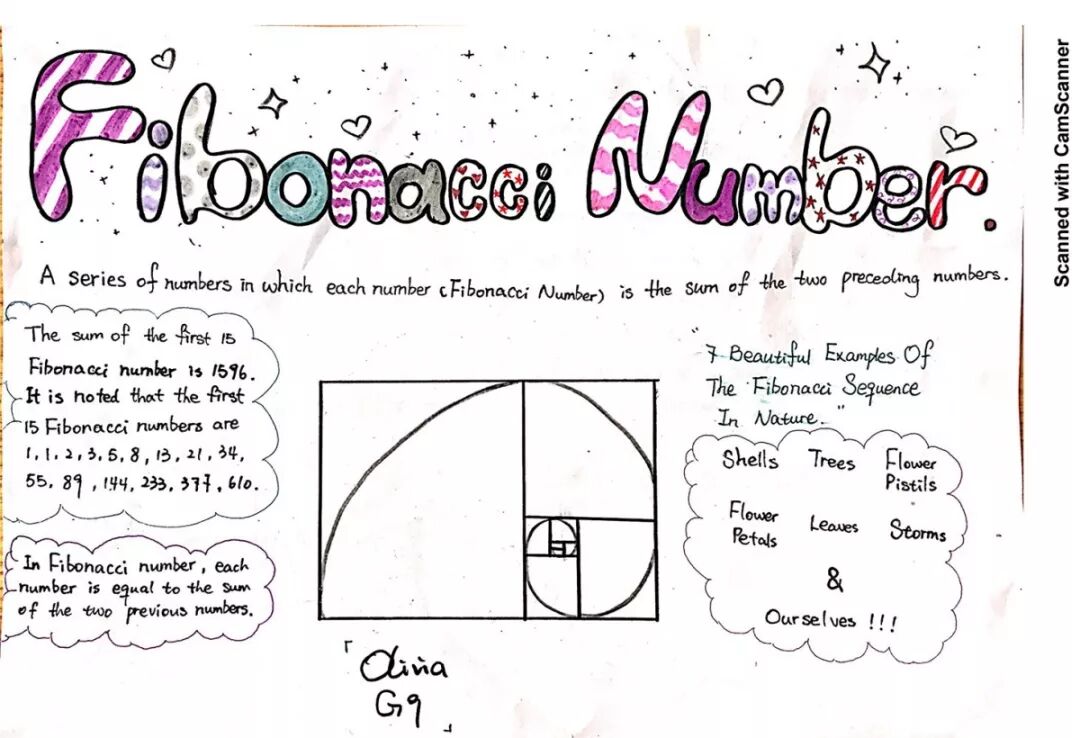 Fibonacci Number.
A series of numbers in which each number (Fibonacci Number) is the sum of the two preceding numbers.
The sum of the first 15
Fibonacci number is 1596.
It is noted that the first
15 Fibonacci numbers are
1, 1, 2, 3, 5, 8, 13, 21, 34,
55, 89, 144, 233, 377, 610.
In Fibonacci number, each
number is equal to the sum
of the two previous numbers.
"7 Beautiful Examples Of
The Fibonacci Sequence
In Nature."
Shells Trees Flower
Pistils
Flower
Petals Leaves Storms
&
Ourselves !!!
「Olivia
G9」
Scanned with CamScanner